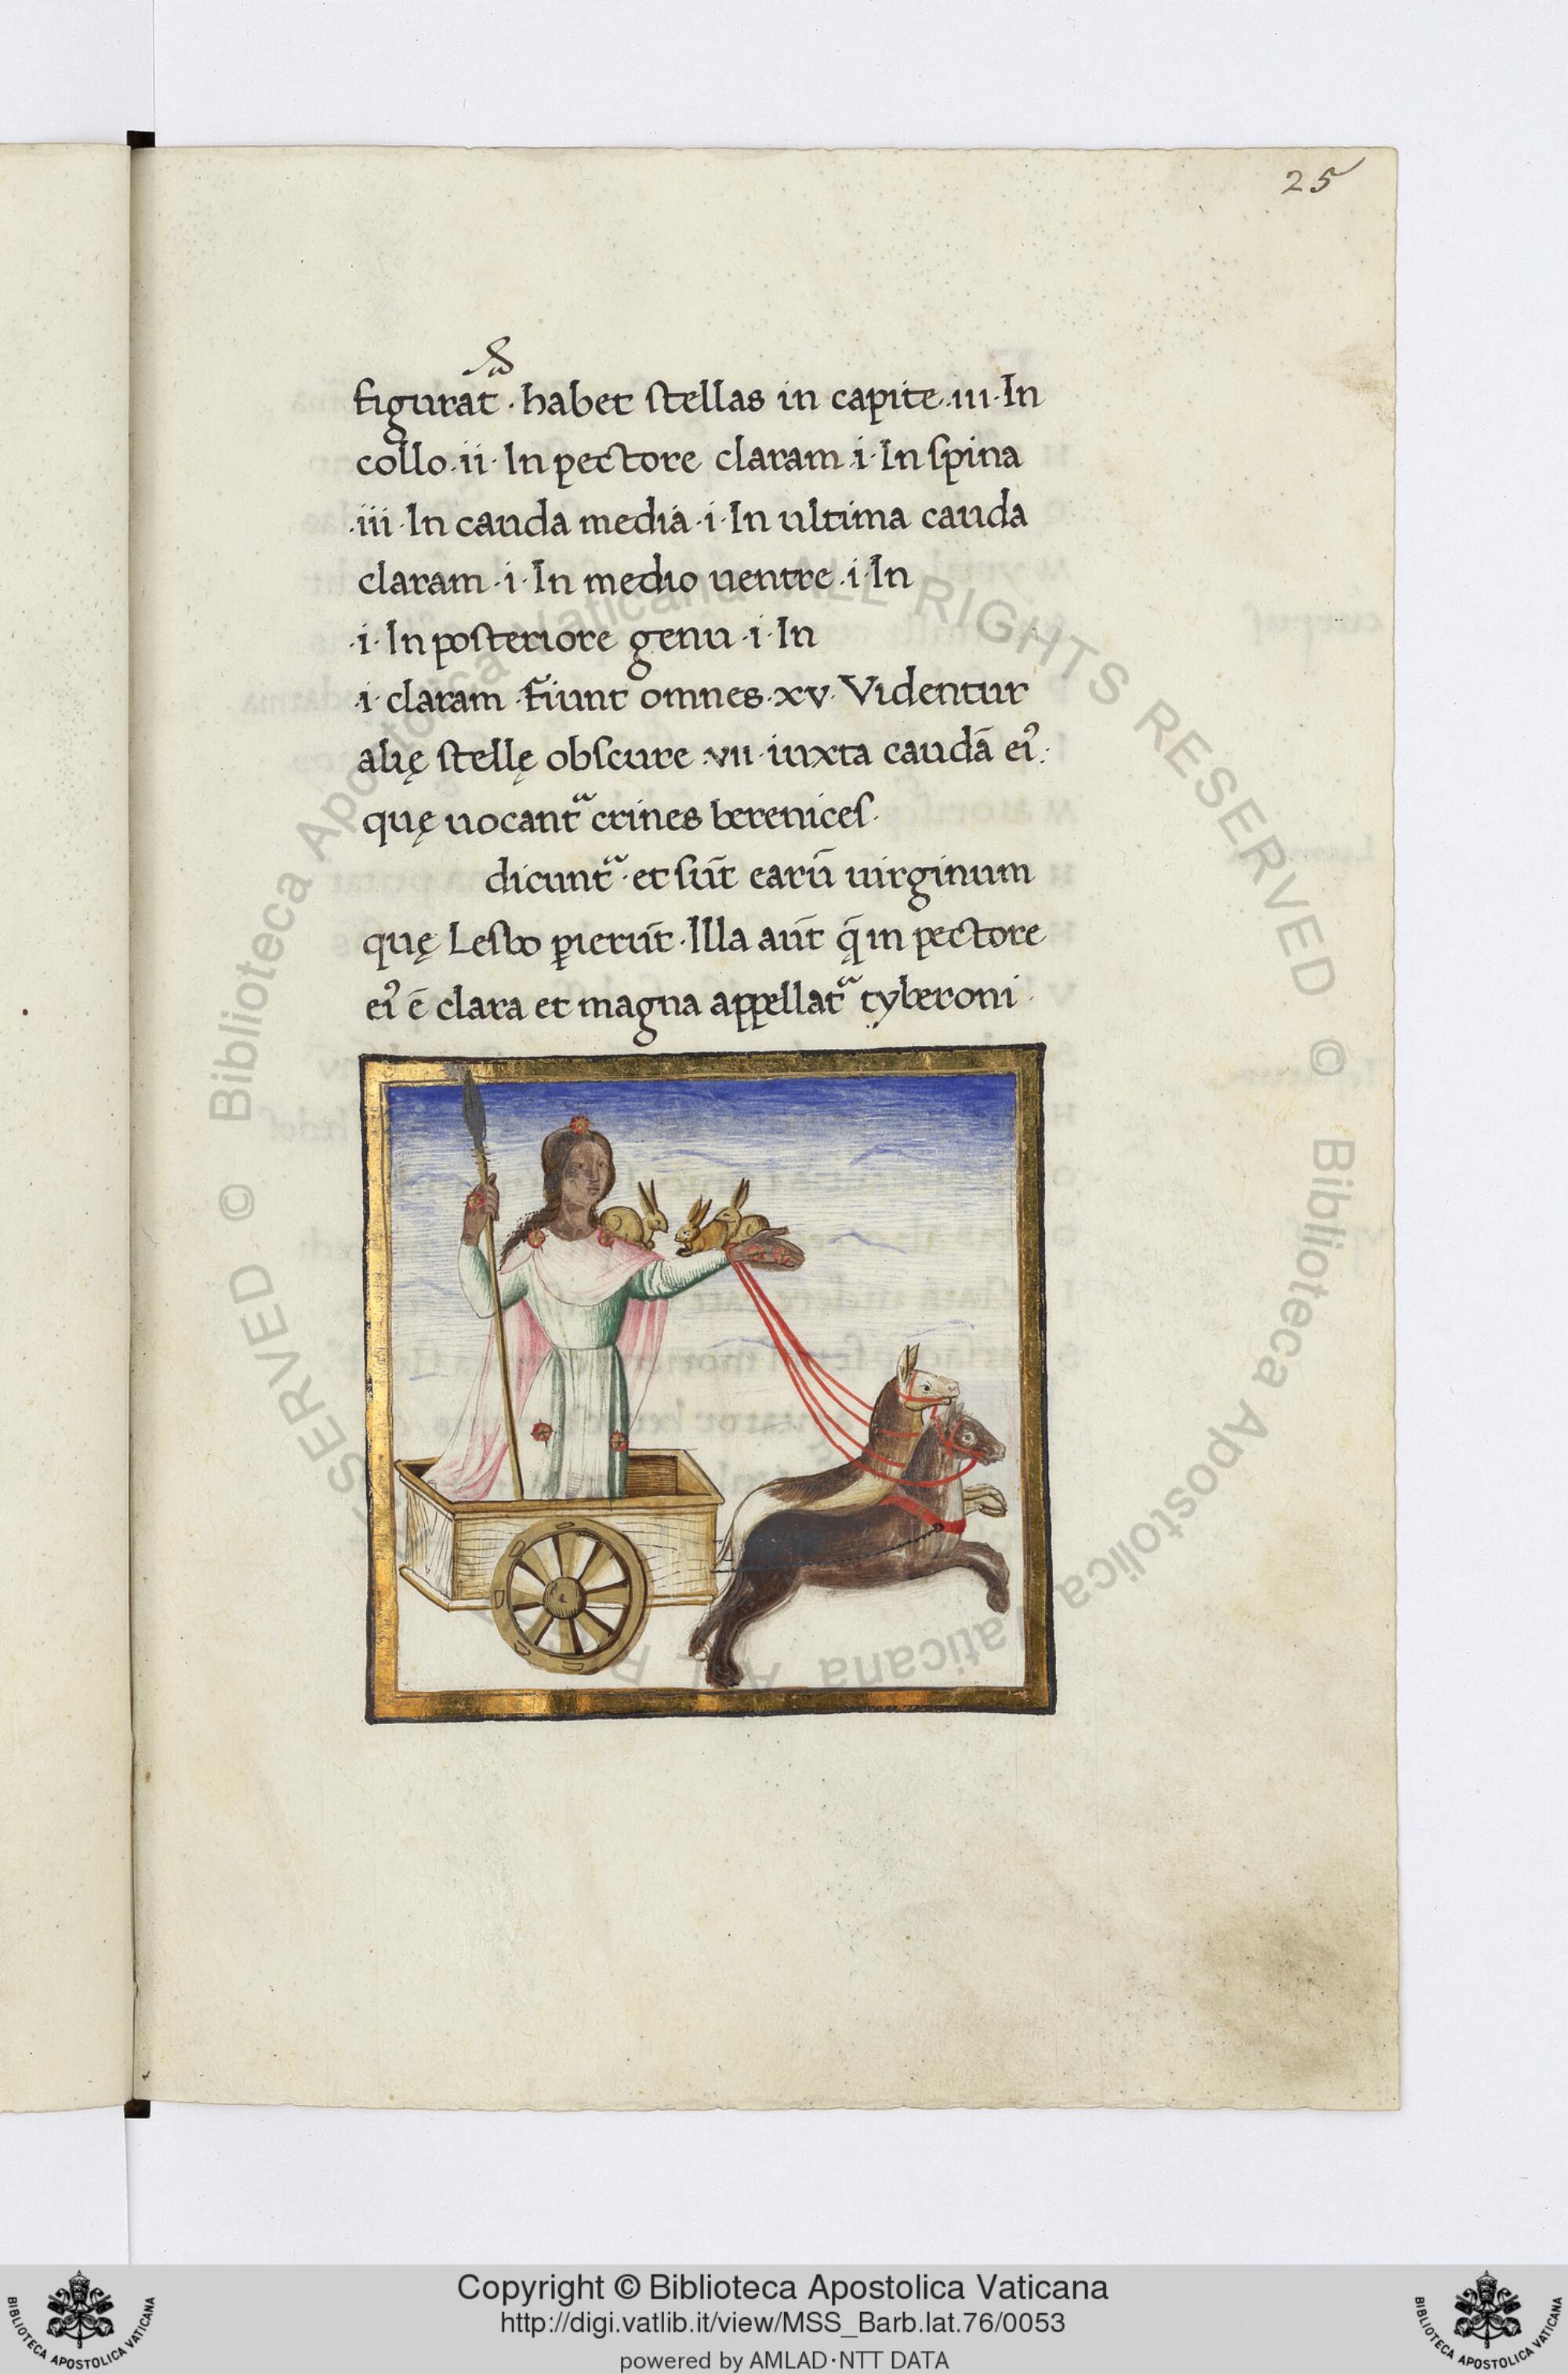 25
figurat᷑ · habet stellas in capite · iii · In
collo · ii · In pectore claram · i · In spina
· iii · In cauda media · i · In ultima cauda
claram · i · In medio uentre · i · In
· i · In posteriore genu · i · In
· i · claram · fiunt omnes · xv · Videntur
alię stellę obscure · vii · iuxta caudā ei᾽ :
quę uocant᷑ crines berenices ·
dicunt᷑ · et sūt earū uirginum
quę Lesbo ꝑierūt · Illa aūt q̨̄ in pectore
ei᾽ ē clara et magna appellat᷑ tyberoni ·
© Biblioteca Apostolica Vaticana ALL RIGHTS RESERVED
© Biblioteca Apostolica Vaticana ALL RIGHTS RESERVED
Copyright © Biblioteca Apostolica Vaticana
http://digi.vatlib.it/view/MSS_Barb.lat.76/0053
powered by AMLAD·NTT DATA
BIBLIOTECA APOSTOLICA VATICANA
BIBLIOTECA APOSTOLICA VATICANA